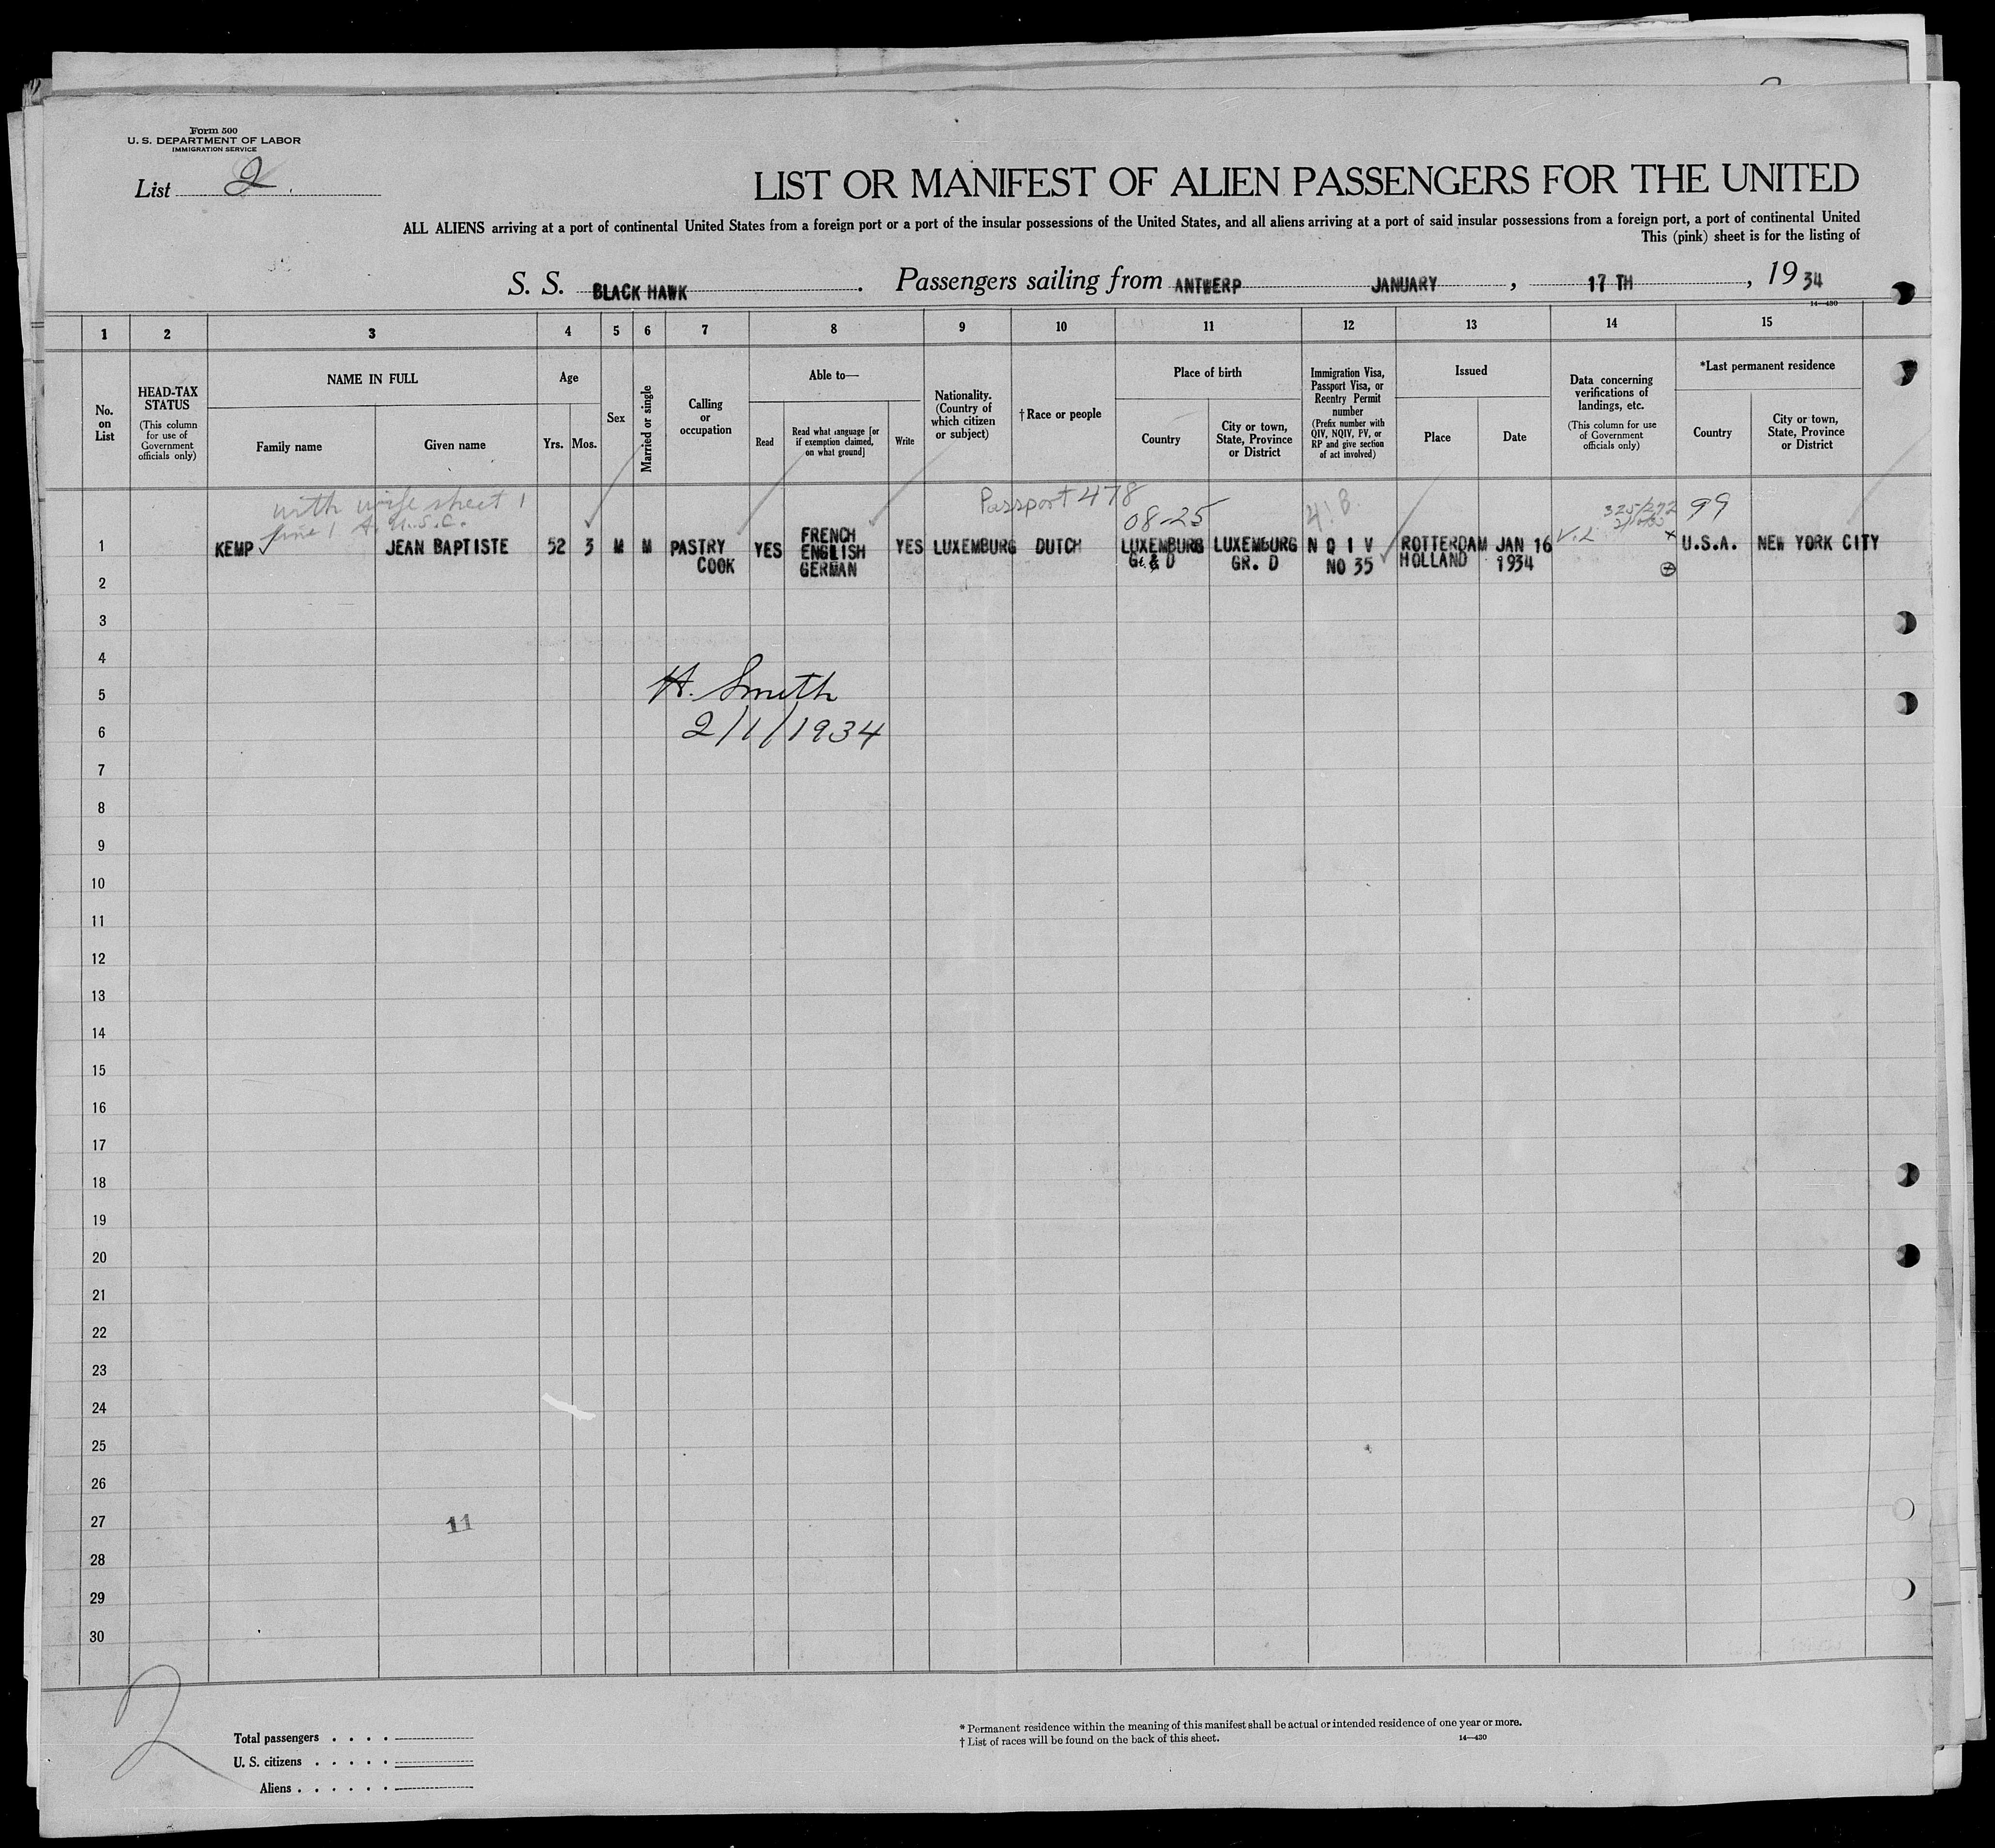 Form 500
U. S. DEPARTMENT OF LABOR
IMMIGRATION SERVICE
List 2
LIST OR MANIFEST OF ALIEN PASSENGERS FOR THE UNITED
ALL ALIENS arriving at a port of continental United States from a foreign port or a port of the insular possessions of the United States, and all aliens arriving at a port of said insular possessions from a foreign port, a port of continental United
This (pink) sheet is for the listing of
S. S. BLACK HAWK . Passengers sailing from ANTWERP JANUARY , 17 TH , 19 34
14—430
1 2 3 4 5 6 7 8 9 10 11 12 13 14 15
No. on List
HEAD-TAX STATUS
(This column for use of Government officials only)
NAME IN FULL
Family name
Given name
Age
Yrs.
Mos.
Sex
Married or single
Calling or occupation
Able to—
Read
Read what language [or if exemption claimed, on what ground]
Write
Nationality. (Country of which citizen or subject)
†Race or people
Place of birth
Country
City or town, State, Province or District
Immigration Visa, Passport Visa, or Reentry Permit number
(Prefix number with QIV, NQIV, PV, or RP and give section of act involved)
Issued
Place
Date
Data concerning verifications of landings, etc.
(This column for use of Government officials only)
*Last permanent residence
Country
City or town, State, Province or District
with wife sheet 1
line 1 A. U.S.C.
Passport 478
08-25
99
1 KEMP JEAN BAPTISTE 52 3 M M PASTRY COOK YES FRENCH ENGLISH GERMAN YES LUXEMBURG DUTCH LUXEMBURG LUXEMBURG GR. D N Q I V NO 35 ROTTERDAM HOLLAND JAN 16 1934 V.L U.S.A. NEW YORK CITY
2
3
4
H. Smith
5
2/1/1934
6
7
8
9
10
11
12
13
14
15
16
17
18
19
20
21
22
23
24
25
26
27
11
28
29
30
2
Total passengers . . . .
U. S. citizens . . . . .
Aliens . . . . . .
* Permanent residence within the meaning of this manifest shall be actual or intended residence of one year or more.
† List of races will be found on the back of this sheet.
14—430